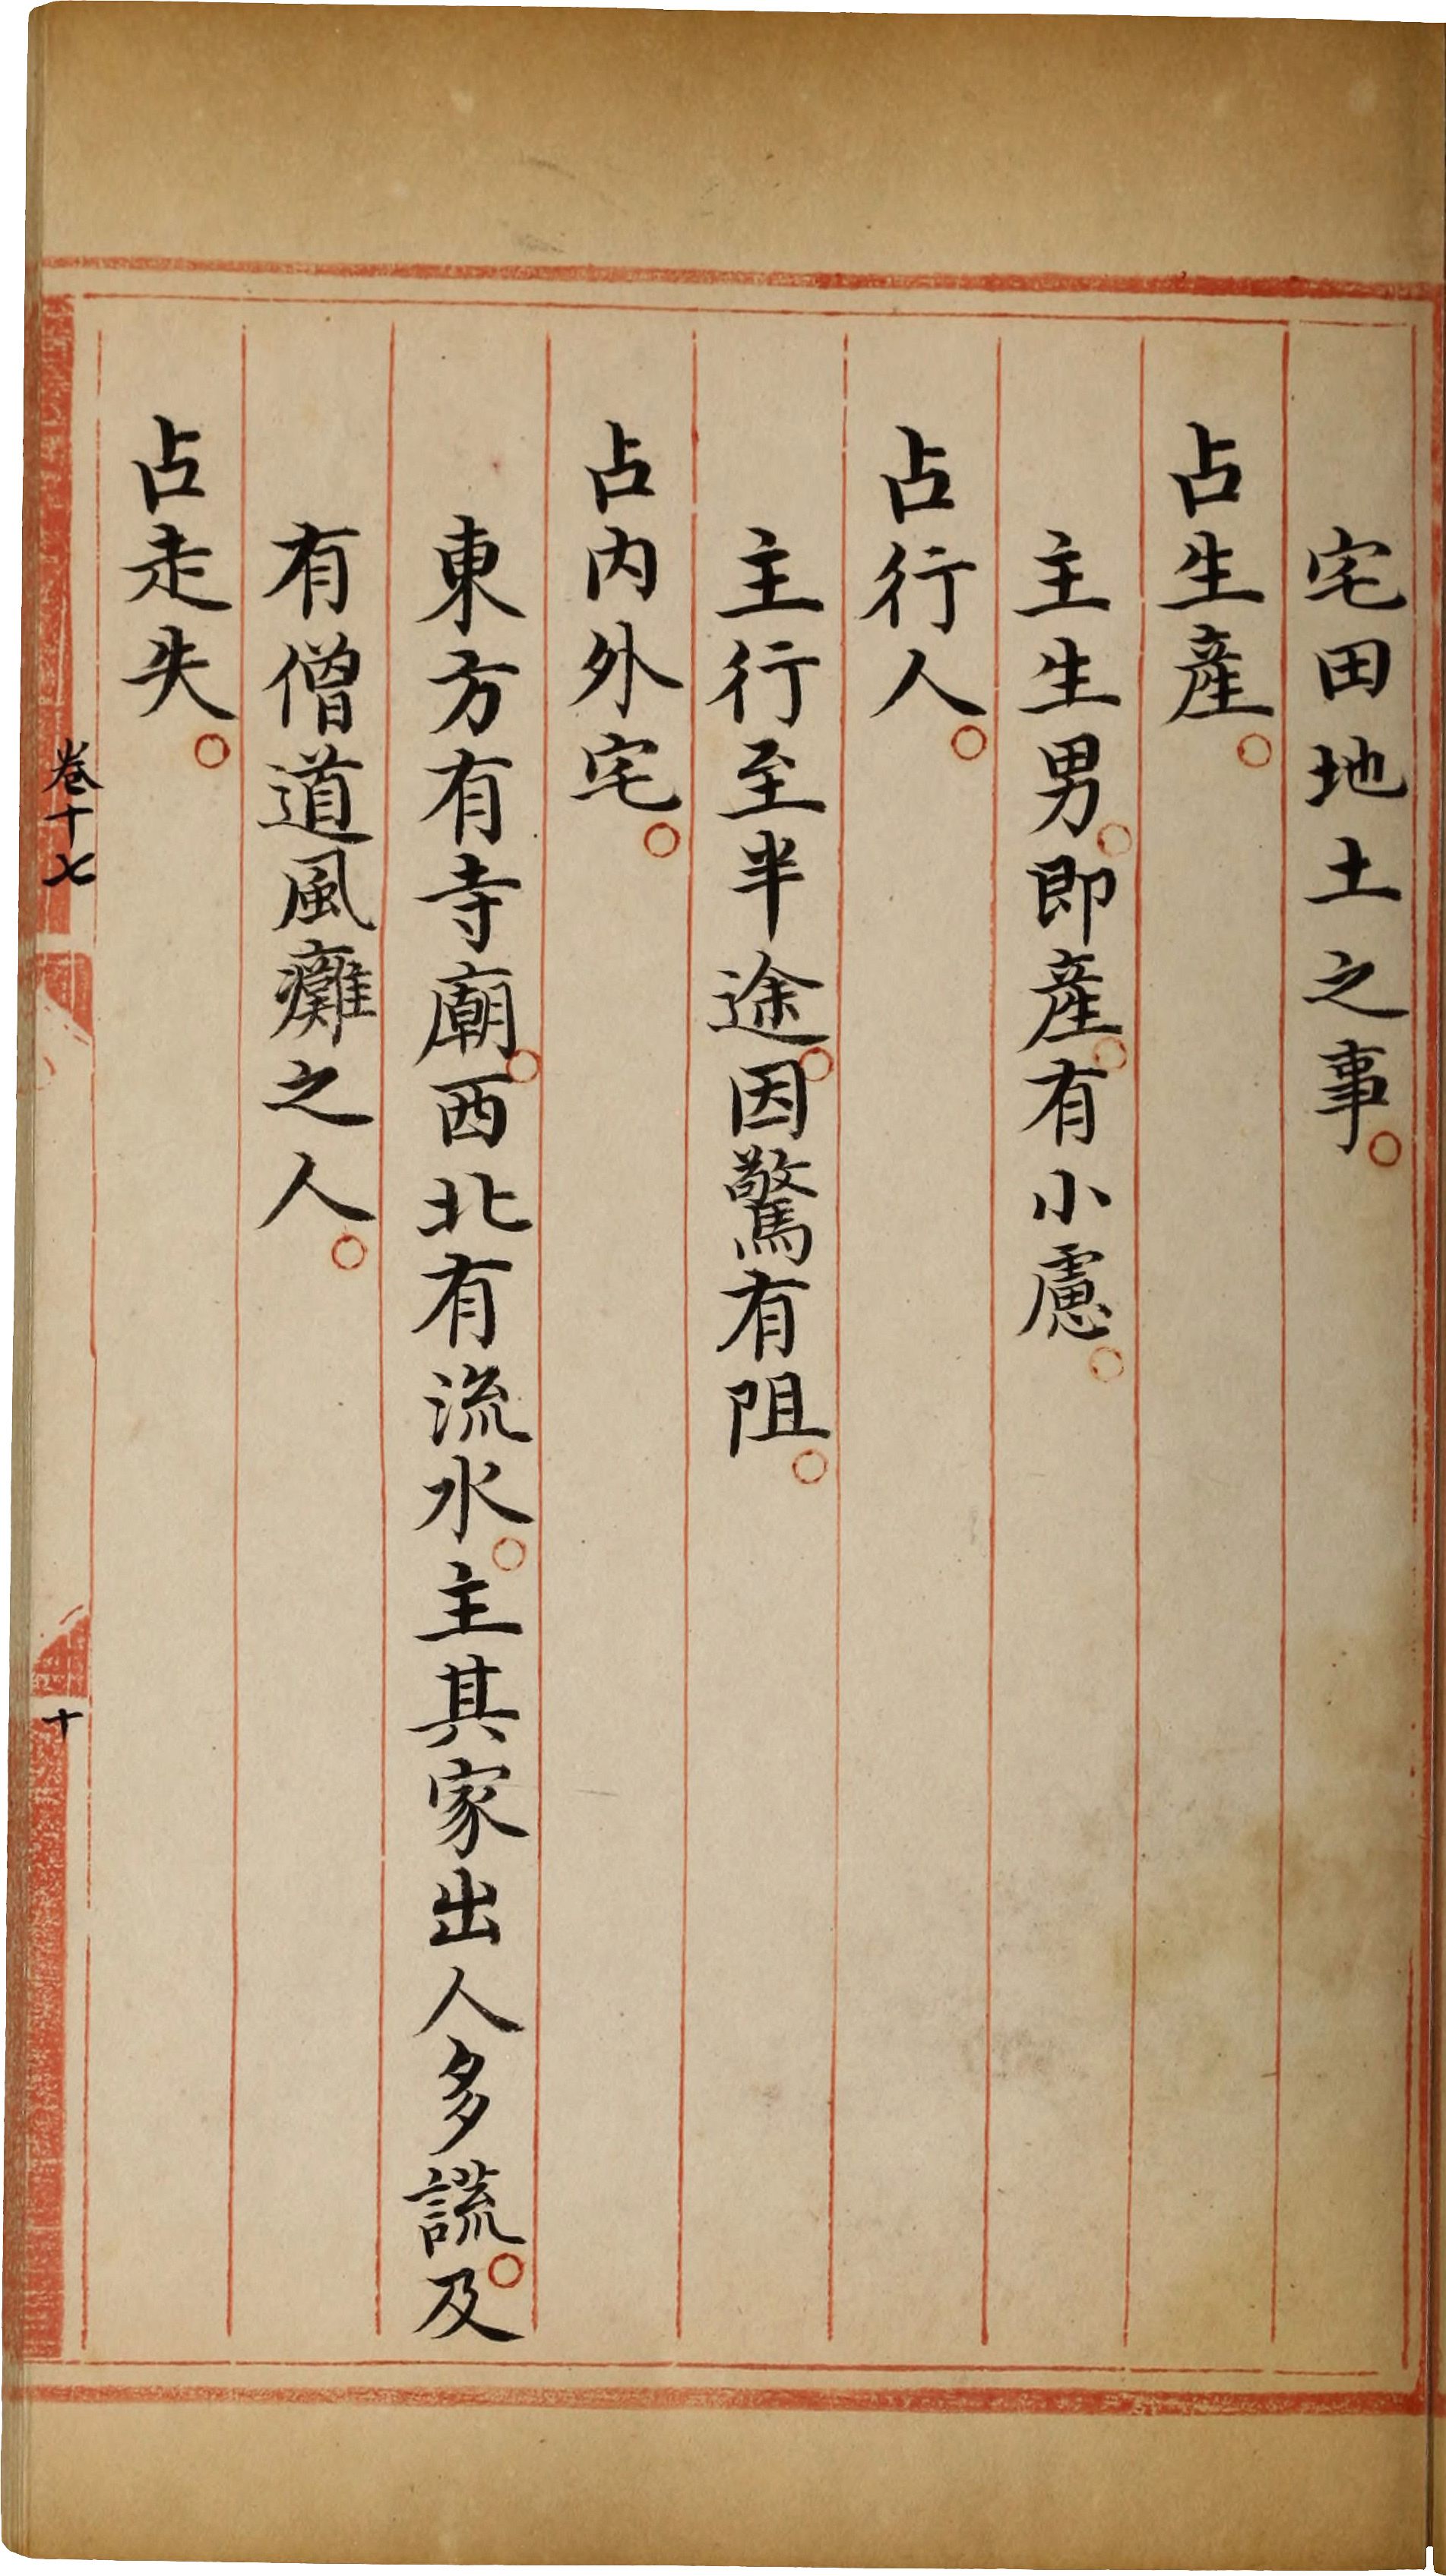 宅田地土之事○
占生產○
主生男○即產○有小慮○
占行人○
主行至半途○因驚有阻○
占内外宅○
東方有寺廟○西北有流水○主其家出人多謊○及
有僧道風癱之人○
占走失○
卷十七
十